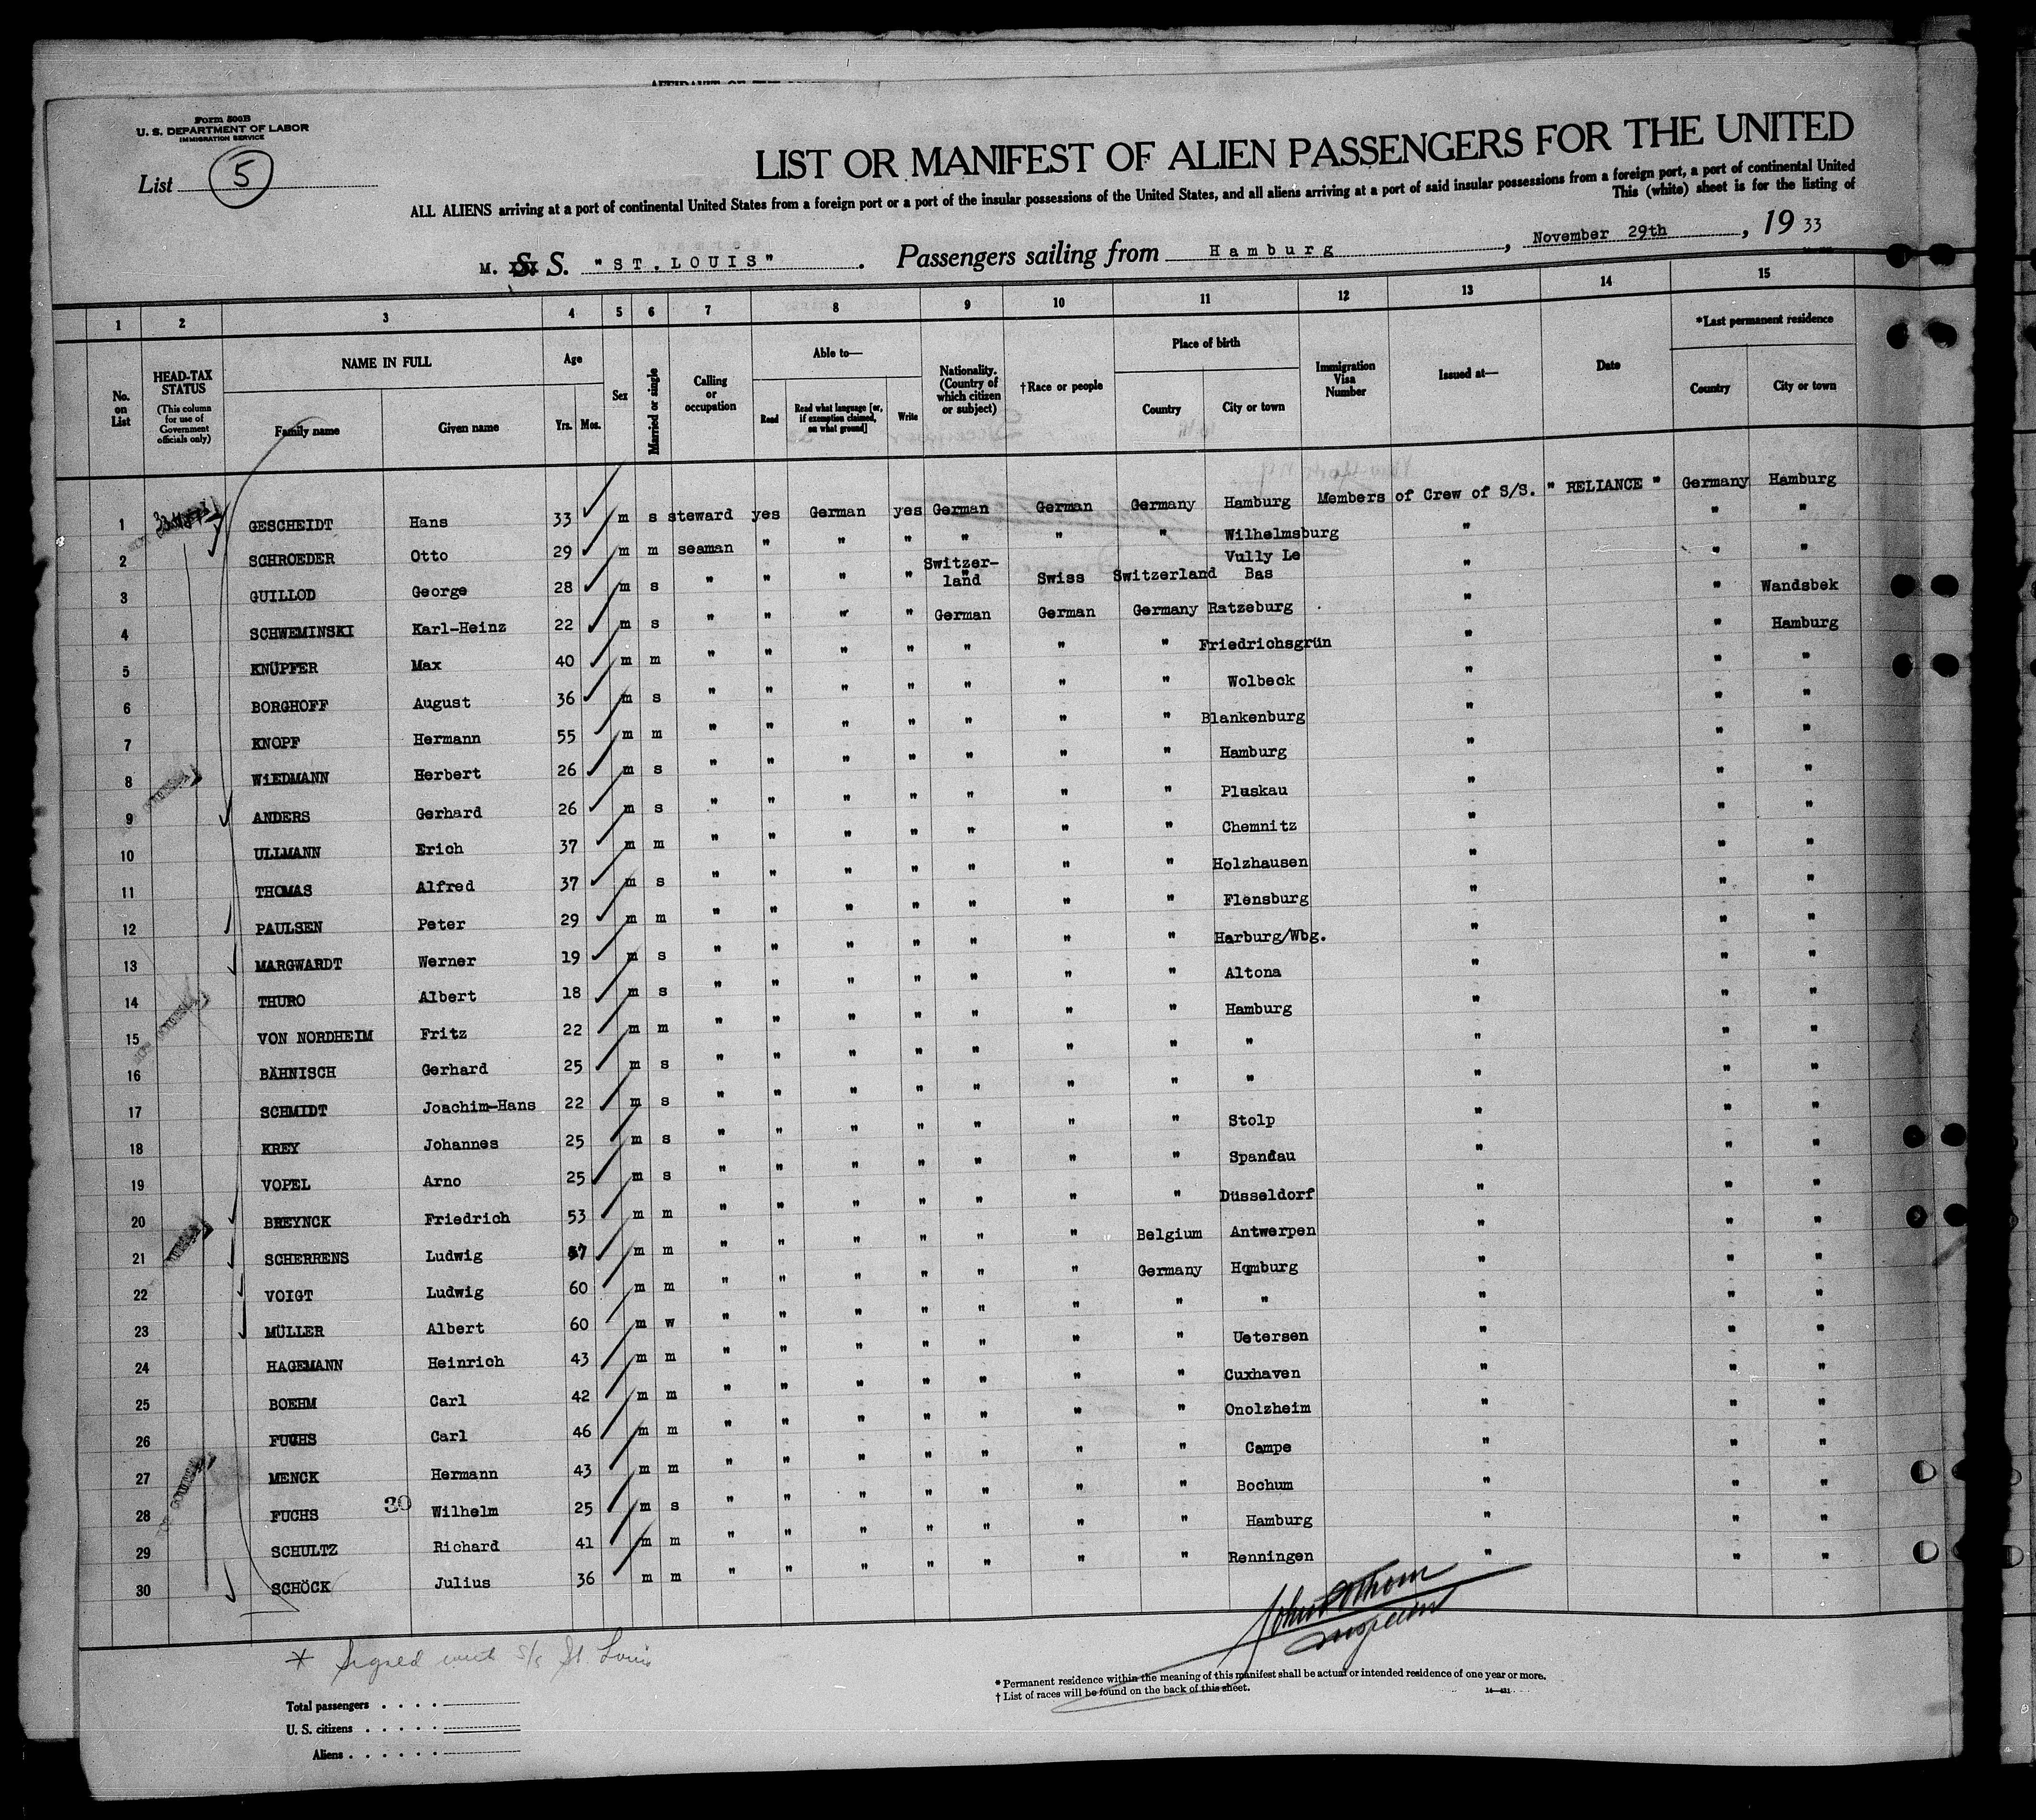 Form 500B
U. S. DEPARTMENT OF LABOR
IMMIGRATION SERVICE
List 5
LIST OR MANIFEST OF ALIEN PASSENGERS FOR THE UNITED
ALL ALIENS arriving at a port of continental United States from a foreign port or a port of the insular possessions of the United States, and all aliens arriving at a port of said insular possessions from a foreign port, a port of continental United
This (white) sheet is for the listing of
M. S. S. "ST. LOUIS" . Passengers sailing from Hamburg , November 29th , 19 33
1 2 3 4 5 6 7 8 9 10 11 12 13 14 15
No. on List
HEAD-TAX STATUS (This column for use of Government officials only)
NAME IN FULL
Family name Given name
Age
Yrs. Mos.
Sex
Married or single
Calling or occupation
Able to—
Read Read what language [or, if exemption claimed, on what ground] Write
Nationality. (Country of which citizen or subject)
†Race or people
Place of birth
Country City or town
Immigration Visa Number
Issued at—
Date
*Last permanent residence
Country City or town
1 GESCHEIDT Hans 33 m s steward yes German yes German German Germany Hamburg Members of Crew of S/S. " RELIANCE " Germany Hamburg
2 SCHROEDER Otto 29 m m seaman " " " " " " Wilhelmsburg " " "
3 GUILLOD George 28 m s " " " " Switzer-land Swiss Switzerland Vully Le Bas " " "
4 SCHWEMINSKI Karl-Heinz 22 m s " " " " German German Germany Ratzeburg " " Wandsbek
5 KNÜPFER Max 40 m m " " " " " " " Friedrichsgrün " " Hamburg
6 BORGHOFF August 36 m s " " " " " " " Wolbeck " " "
7 KNOPF Hermann 55 m m " " " " " " " Blankenburg " " "
8 WiEDMANN Herbert 26 m s " " " " " " " Hamburg " " "
9 ANDERS Gerhard 26 m s " " " " " " " Pluskau " " "
10 ULLMANN Erich 37 m m " " " " " " " Chemnitz " " "
11 THOMAS Alfred 37 m s " " " " " " " Holzhausen " " "
12 PAULSEN Peter 29 m m " " " " " " " Flensburg " " "
13 MARGWARDT Werner 19 m s " " " " " " " Harburg/Wbg. " " "
14 THURO Albert 18 m s " " " " " " " Altona " " "
15 VON NORDHEIM Fritz 22 m m " " " " " " " Hamburg " " "
16 BÄHNISCH Gerhard 25 m s " " " " " " " " " " "
17 SCHMIDT Joachim-Hans 22 m s " " " " " " " " " " "
18 KREY Johannes 25 m s " " " " " " " Stolp " " "
19 VOPEL Arno 25 m s " " " " " " " Spandau " " "
20 BREYNCK Friedrich 53 m m " " " " " " " Düsseldorf " " "
21 SCHERRENS Ludwig 57 m m " " " " " " Belgium Antwerpen " " "
22 VOIGT Ludwig 60 m m " " " " " " Germany Hamburg " " "
23 MÜLLER Albert 60 m w " " " " " " " " " " "
24 HAGEMANN Heinrich 43 m m " " " " " " " Uetersen " " "
25 BOEHM Carl 42 m m " " " " " " " Cuxhaven " " "
26 FUCHS Carl 46 m m " " " " " " " Onolzheim " " "
27 MENCK Hermann 43 m m " " " " " " " Campe " " "
28 FUCHS 30 Wilhelm 25 m s " " " " " " " Bochum " " "
29 SCHULTZ Richard 41 m m " " " " " " " Hamburg " " "
30 SCHÖCK Julius 36 m m " " " " " " " Renningen " " "
* Signed with S/s St. Louis
Inspector
* Permanent residence within the meaning of this manifest shall be actual or intended residence of one year or more.
† List of races will be found on the back of this sheet.
Total passengers . . . .
U. S. citizens . . . . .
Aliens . . . . . .